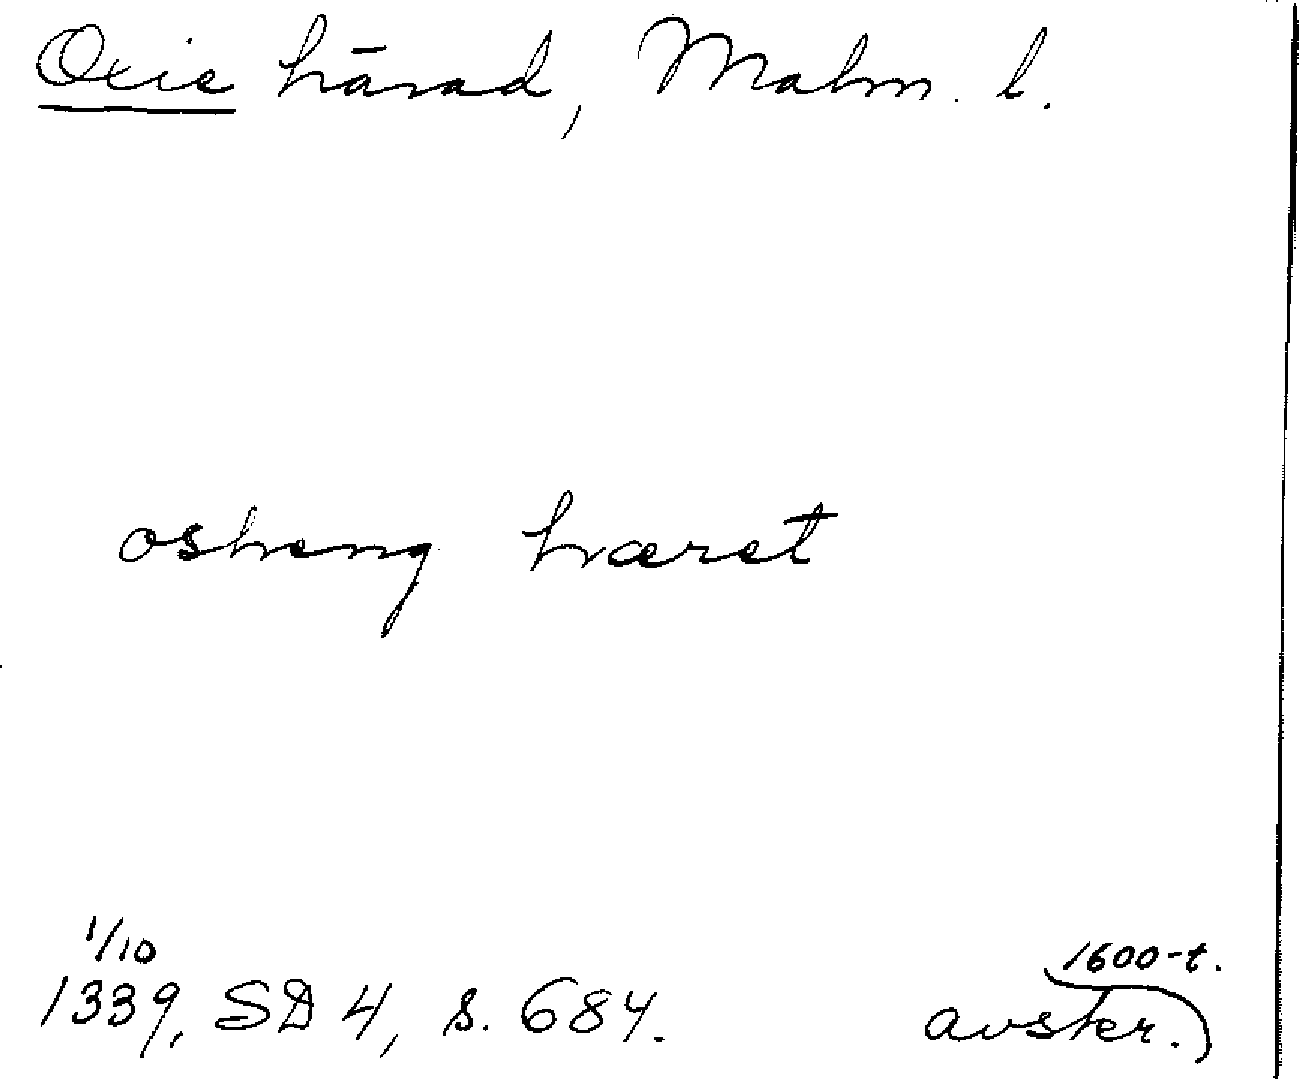 Oxie härad, Malm. l.
osheng hæret
1/10
1339, SD 4, s. 684.
1600-t.
avskr.)